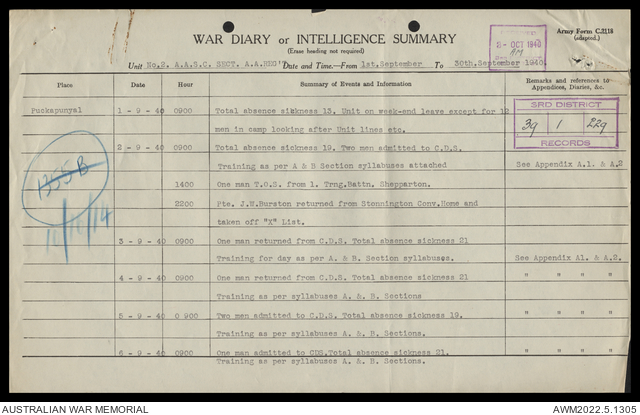 WAR DIARY or INTELLIGENCE SUMMARY
(Erase heading not required)
Army Form C.2118
(adapted.)
3- OCT 1940
AM
Unit No.2. A.A.S.C. SECT. A.A.REG' Date and Time—From 1st.September To 30th.September 1940.
Place Hour Summary of Events and Information Remarks and references to Appendices, Diaries, &c.
3RD DISTRICT
39 1 229
RECORDS
Puckapunyal 1 - 9 - 40 0900 Total absence sickness 13. Unit on week-end leave except for 12
men in camp looking after Unit lines etc.
2 - 9 - 40 0900 Total absence sickness 19. Two men admitted to C.D.S.
Training as per A & B Section syllabuses attached See Appendix A.1. & A.2
1400 One man T.O.S. from 1. Trng.Battn. Shepparton.
2200 Pte. J.M.Burston returned from Stonnington Conv.Home and
taken off "X" List.
3 - 9 - 40 0900 One man returned from C.D.S. Total absence sickness 21
Training for day as per A. & B. Section syllabuses. See Appendix A1. & A.2.
4 - 9 - 40 0900 One man returned from C.D.S. Total absence sickness 21 " " " "
Training as per syllabuses A. & B. Sections
5 - 9 - 40 0 900 Two men admitted to C.D.S. Total absence sickness 19. " " " "
Training as per syllabuses A. & B. Sections.
6 - 9 - 40 0900 One man admitted to CDS.Total absence sickness 21. " " " "
Training as per syllabuses A. & B. Sections.
1355B
AUSTRALIAN WAR MEMORIAL
AWM2022.5.1305